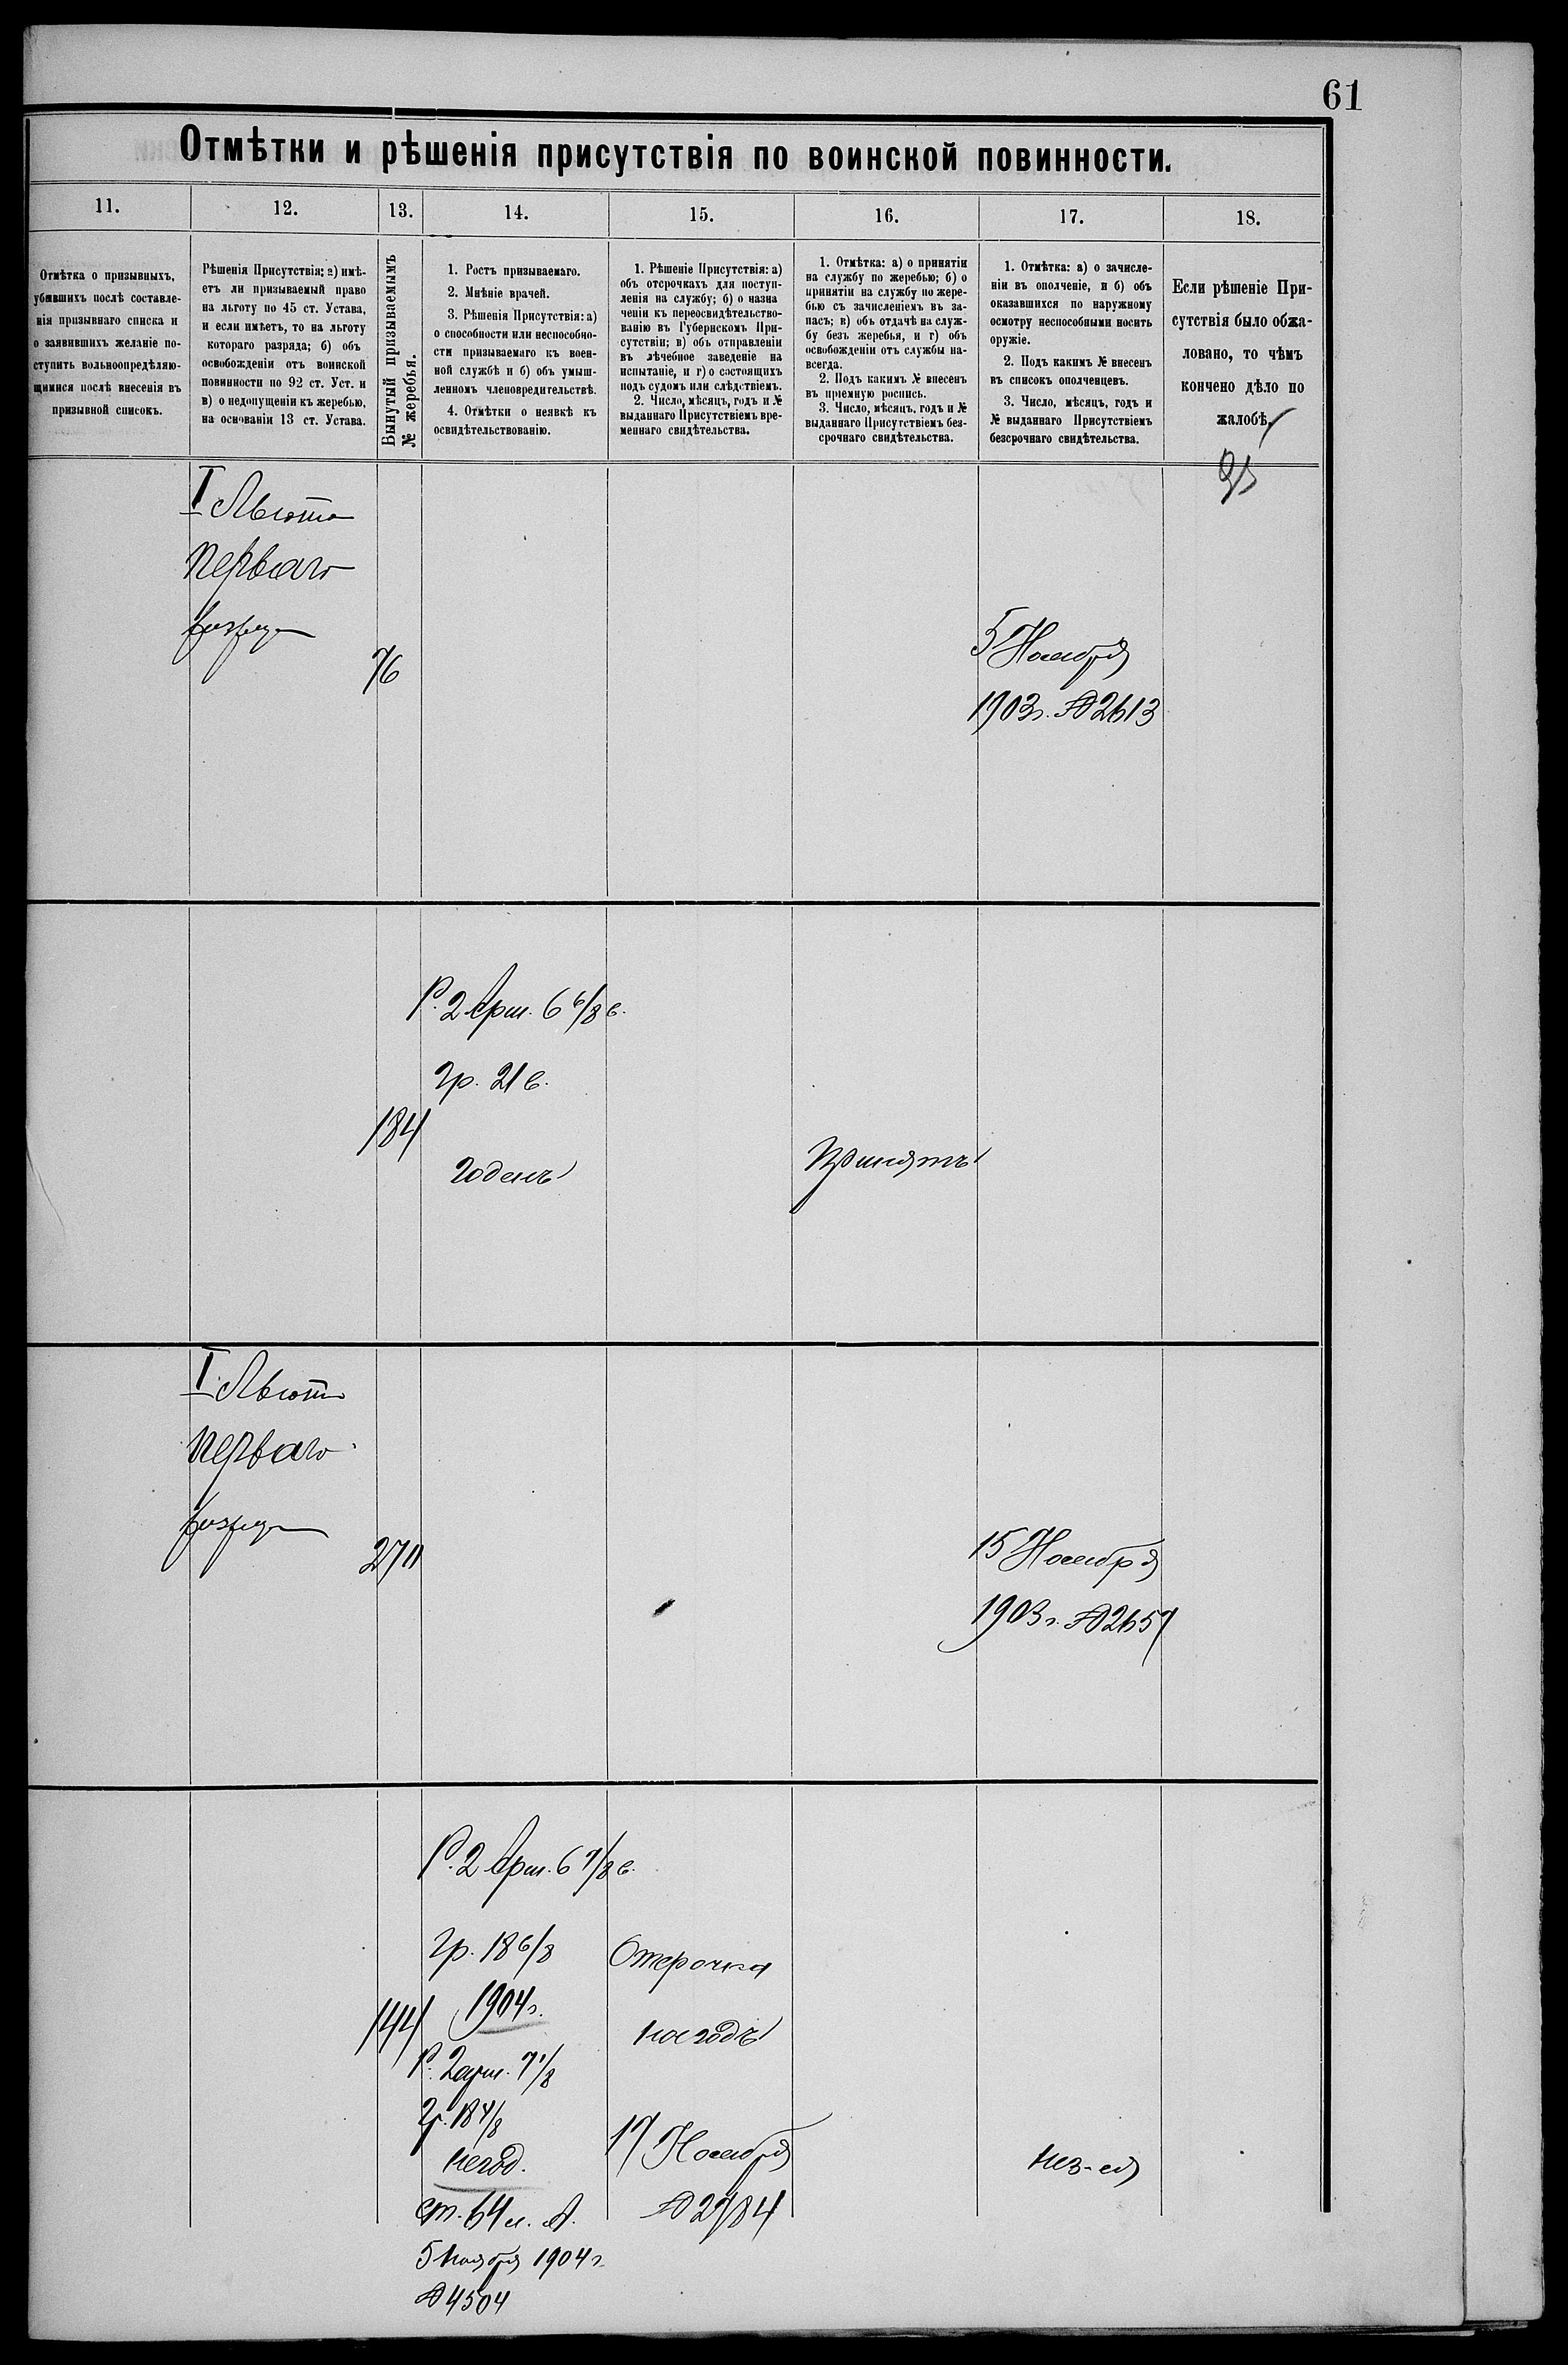 61
Отмѣтки и рѣшенія присутствія по воинской повинности.
11.
12.
13.
14.
15.
16.
17.
18.
Отмѣтка о призывныхъ,
убывшихъ послѣ составле-
нія призывнаго списка и
о заявившихъ желаніе по-
ступить вольноопредѣляю-
щимися послѣ внесенія въ
призывной списокъ.
Рѣшенія Присутствія: а) имѣ-
етъ ли призываемый право
на льготу по 45 ст. Устава,
и если имѣетъ, то на льготу
котораго разряда; б) объ
освобожденіи отъ воинской
повинности по 92 ст. Уст. и
в) о недопущеніи къ жеребью,
на основаніи 13 ст. Устава.
Вынутый призываемымъ
№ жеребья.
1. Ростъ призываемаго.
2. Мнѣніе врачей.
3. Рѣшенія Присутствія: а)
о способности или неспособно-
сти призываемаго къ воен-
ной службѣ и б) объ умыш-
ленномъ членовредительствѣ.
4. Отмѣтки о неявкѣ къ
освидѣтельствованію.
1. Рѣшеніе Присутствія: а)
объ отсрочкахъ для поступ-
ленія на службу; б) о назна
ченіи къ переосвидѣтельство-
ванію въ Губернскомъ При-
сутствіи; в) объ отправленіи
въ лѣчебное заведеніе на
испытаніе, и г) о состоящихъ
подъ судомъ или слѣдствіемъ.
2. Число, мѣсяцъ, годъ и №
выданнаго Присутствіемъ вре-
меннаго свидѣтельства.
1. Отмѣтка: а) о принятіи
на службу по жеребью; б) о
принятіи на службу по жере-
бью съ зачисленіемъ въ за-
пасъ; в) объ отдачѣ на служ-
бу безъ жеребья, и г) объ
освобожденіи отъ службы на-
всегда.
2. Подъ какимъ № внесенъ
въ пріемную роспись.
3. Число, мѣсяцъ, годъ и №
выданнаго Присутствіемъ без-
срочнаго свидѣтельства.
1. Отмѣтка: а) о зачисле-
ніи въ ополченіе, и б) объ
оказавшихся по наружному
осмотру неспособными носить
оружіе.
2. Подъ какимъ № внесенъ
въ списокъ ополченцевъ.
3. Число, мѣсяцъ, годъ и
№ выданнаго Присутствіемъ
безсрочнаго свидѣтельства.
Если рѣшеніе При-
сутствія было обжа-
ловано, то чѣмъ
кончено дѣло по
жалобѣ.
I Льгота
перваго
разряда
76
5 Ноября
1903 г. №2613
Р. 2 арш. 6 6/8 в.
гр. 21 в.
184
годенъ
Принятъ
I Льгота
перваго
разряда
270
15 Ноября
1903 г. №2657
Р. 2 арш. 6 7/8 в.
гр. 18 6/8
Отсрочка
144
1904 г.
на годъ
Р. 2 арш. 7 1/8
гр. 18 4/8
17 Ноября
негод.
ст. 64 л. А.
№2784
5 Ноября 1904 г.
№4504